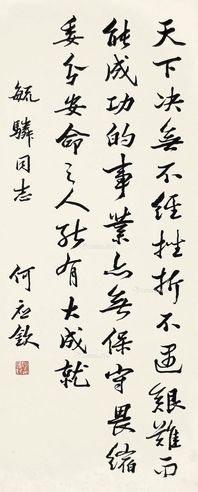 天下决無不經挫折不遇艱難而
能成功的事業亦無保守畏縮
委分安命之人能有大成就
毓驎同志
何应欽